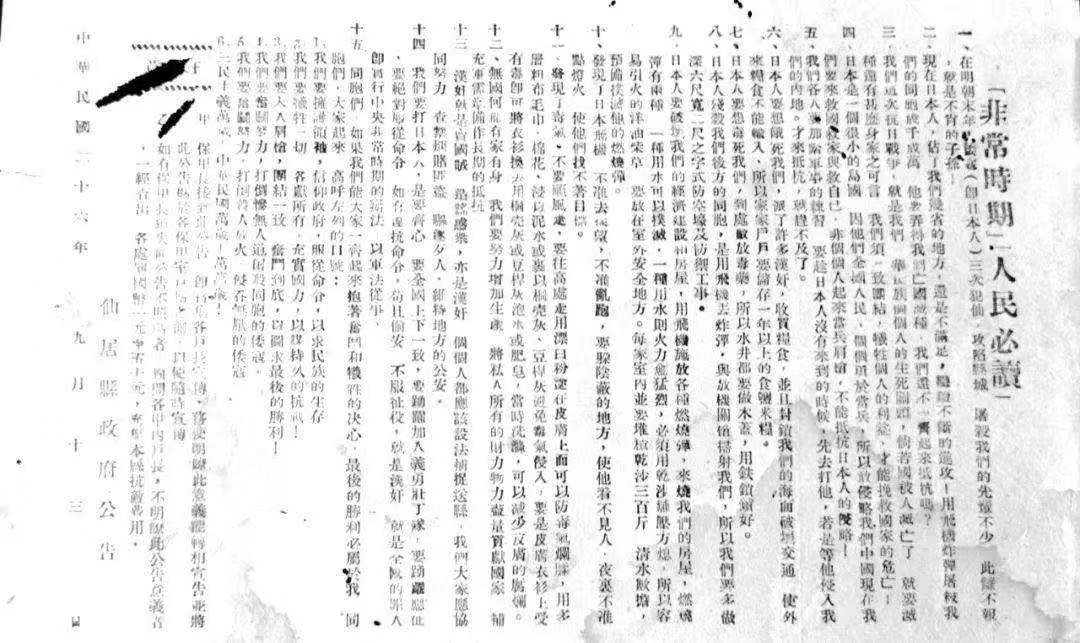 「非常時期」人民必讀
一、在明朝末年，倭寇（卽日本人）三次犯仙，攻陷縣城，屠殺我們的先輩不少，此讎不報
，就是不肖的子孫！
二、現在日本人，佔了我們幾省的地方，還是不滿足，繼續不斷的進攻！用飛機炸彈屠殺我
們的同胞成千成萬，他要弄得我們亡國滅種，我們還不一齊起來抵抗嗎？
三、我們這次抗日戰爭，就是我們 華民族個個人的生死關頭，倘若國被人滅亡了，就要滅
種還有甚麼身家之可言，我們須一致團結，犧牲個人的利益，才能挽救國家的危亡！
四、日本是一個很小的島國，因他們全國人民，個個項於當兵，所以敢侵略我們中國現在我
們要來救國救家與救自己，非個個人起來當兵肩槍，不能抵抗日本人的侵略！
五、我們各人要加緊軍事的練習，要趁日本人沒有來到的時候，先去打他，若是等他侵入我
們的內地。才來抵抗，就遲不及了。
六、日本人要餓死我們，派了許多漢奸，收買糧食，並且封鎖我們的海面破壞交通，使外
來糧食不能輸入，所以家家戶戶要儲存一年以上的食鹽米糧。
七、日本人要想毒死我們，到處散放毒藥，所以水井都要做木蓋，用鉄鎖鎖好。
八、日本人殘殺我們後方的同胞，是用飛機丟炸彈，與放機關槍掃射我們，所以我們要多做
深六尺寬二尺之字式防空壕及防禦工事。
九、日本人要破壞我們的經濟建設和房屋，用飛機施放各種燃燒彈，來燒我們的房屋，燃燒
彈有兩種，一種用水可以撲滅，一種用水則火力愈猛烈，必須用乾沙舖壓方熄，所以容
易引火的洋油柴草，要放在室外安全地方。每家室內並要堆積乾沙三百斤，清水數擔，
預備撲滅他的燃燒彈。
十、發現了日本飛機，不准去探望，不准亂跑，要躲陰蔽的地方，使他看不見人，夜裏不准
點燈火，使他們找不著目標。
十一、發現了毒氣，不要順風走，要往高處走用漂白粉塗在皮膚上面可以防毒氣爛膚，用多
層粗布毛巾，棉花，浸肉泥水或裹以桐壳灰、豆桿灰避免毒氣侵入，要是皮膚衣衫上受
有毒卽可將衣衫換去用桐壳灰或豆桿灰泡水或肥皂，當時洗滌，可以減少皮膚的腐爛。
十二、無國何能有家有身，我們要努力增加生產，將私人所有的財力物力盡量貢獻國家，補
充軍需準備作長期的抵抗
十三、漢奸奸是賣國賊，造謠惑衆，亦是漢奸，個個人都應該設法捕捉送縣，我們大家應協
同努力，查拏煙賭匪盜，聯絡夕人，維持地方的公安。
十四、我們要打日本人，是要齊心，要全國上下一致，要踴躍加入義勇壯丁隊，要踴躍應征
，要絕對服從命令，如有違抗命令，苟且偷安，不服徵役，就是漢奸，就是全國的罪人
卽實行中央非常時期的辦法，以軍法從事，
十五、同胞們，如果我們能大家一齊起來抱著奮鬥和犧牲的决心，最後的勝利必屬於我，同
胞們，大家起來，高呼左列的口號：
1. 我們要擁護領袖，信仰政府，服從命令，以求民族的生存
2. 我們要犧牲一切，各獻所有，充實國力，以謀持久的抗戰！
3. 我們要人人肩槍，團結一致，奮鬥到底，以圖求最後的勝利！
4. 我們要奮鬪努力，打倒慘無人道的殺同胞的倭寇，
5. 我們要奮鬪努力，打倒殺人放火，侵吞無厭的倭寇
6. 三民主義萬歲，中華民國萬歲！萬萬歲！
保甲長接到此公告，卽召集各戶長宣傳，務使明瞭此意義輾轉相宣告並將
此公告懸於各保甲室門前，以便隨時宣傳
如有保甲長遺失此公告不明者，與閉各甲內戶長，不明瞭此公告意義者
，一經查出，各處罰國幣一元至五十元，充給本縣抗敵費用。
仙居縣政府公告
中華民國二十六年 九月十三 日